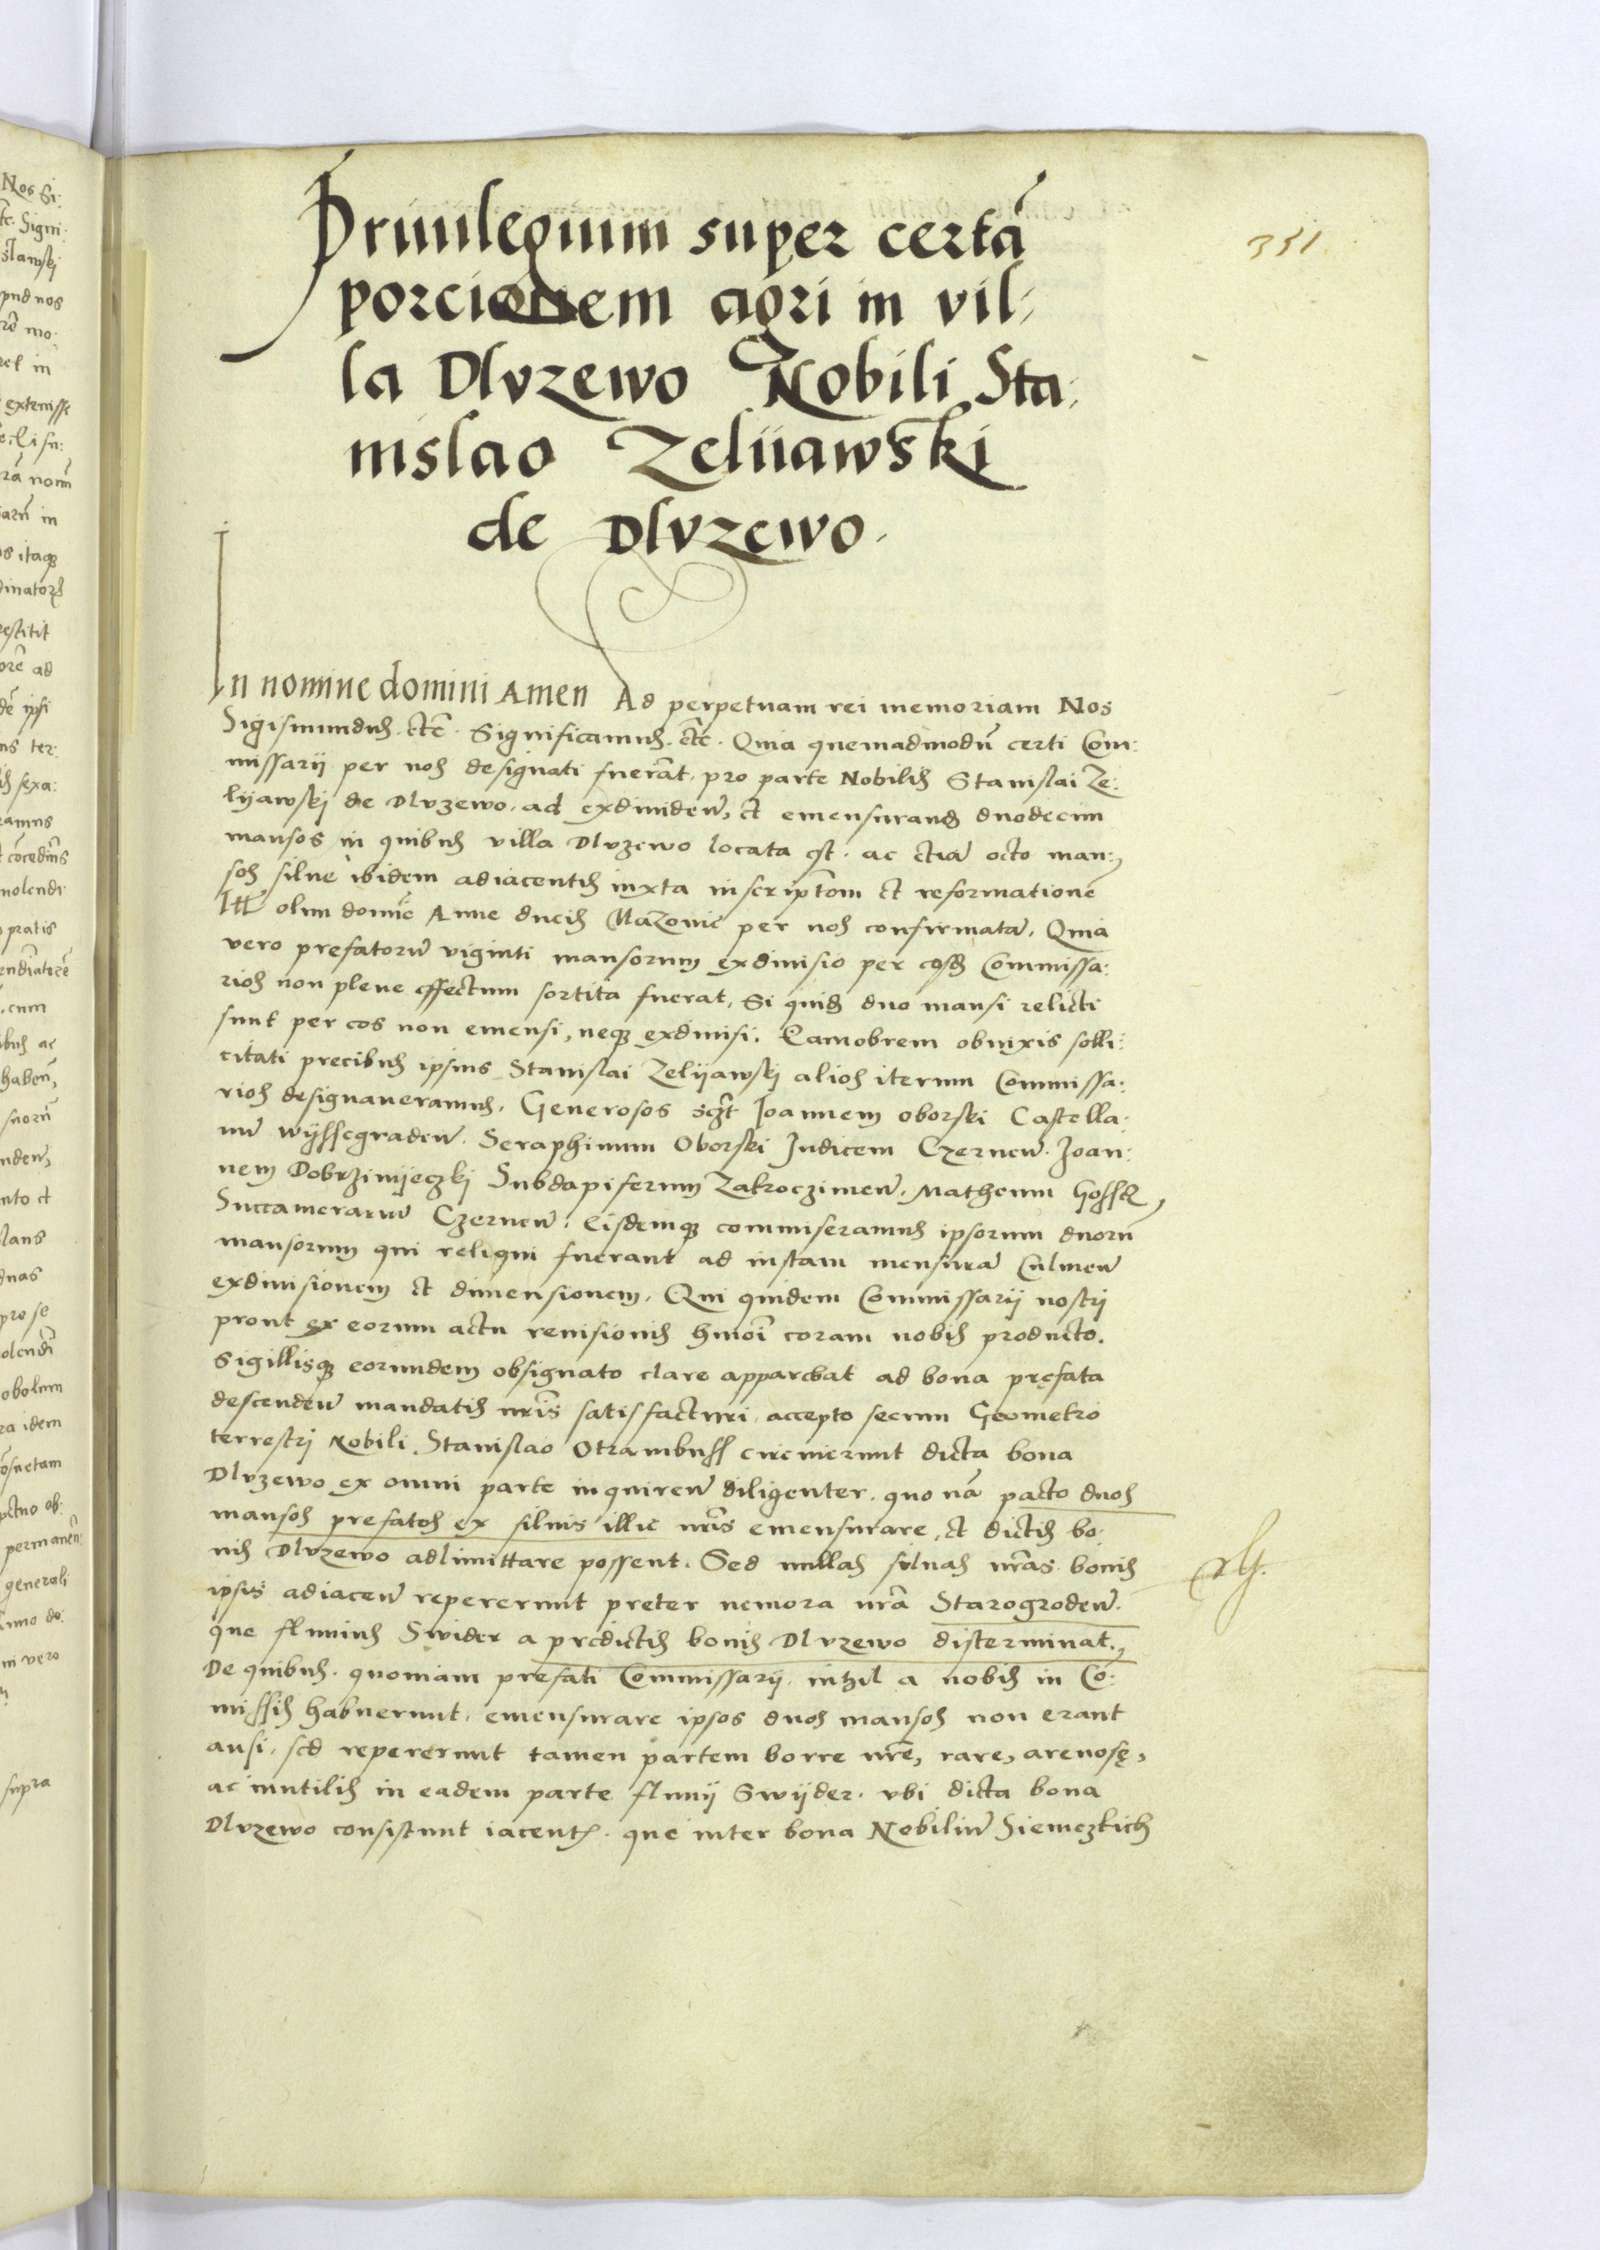 351
Priuilegium super certã
porcionem agri in vil-
la Dlvzewo Nobili Sta:
nislao Zelijawski
de Dlvzewo.
In nomine domini Amen Ad perpetuam rei memoriam Nos
Sigismundus. etc̃. Significamus. etc̃. Quia quemadmodũ certi Com:
missarij per nos designati fuerãt, pro parte Nobilis Stanislai Ze:
lijawskj de Dlvzewo. ad exdiuideñ, et emensurand duodecim
mansos in quibus villa Dlvzewo locata est. ac etiã octo man:
sos silue ibidem adiacentis iuxta inscriptõm et reformationẽ
Ill olim domĩe Anne ducis Mazouie per nos confirmatã. Quia
vero prefatorũ viginti mansorum exdiuisio per eosd Commissa:
rios non plene effectum sortita fuerat, Si quid duo mansi relicti
sunt per eos non emensi, neq exdiuisi. Eamobrem obnixis solli:
citati precibus ipsius Stanislai Zelijawskj alios iterum Commissa:
rios designaueramus. Generosos Joannem oborski Castella:
nũ Wijssegradeñ. Seraphinum Oborski Judicem Czerneñ. Joan:
nem Dobrzinijeczkj Subdapiferum Zakroczimeñ. Matheum
Succamerariũ Czerneñ. Eisdemq commiseramus ipsorum duorũ
mansorum qui reliqui fuerant ad iustam mensurã Culmeñ
exdiuisionem et dimensionem. Qui quidem Commissarij nostrj
prout ex eorum actu reuisionis hmoĩ coram nobis producto.
Sigillisq eorundem obsignato clare apparebat ad bona pręfata
descendeñ mandatis nrĩs satisfacturi, accepto secum Geometro
terrestrj Nobili Stanislao circuierunt dicta bona
Dlvzewo ex omni parte inquireñ diligenter. quo nã pacto duos
mansos prefatos ex siluis illic nrĩs emensurare, et dictis bo:
nis Dlvzewo adlimittare possent. Sed nullas siluas nrãs bonis
ipsis adiaceñ repererunt preter nemora nrã Starogrodeñ.
que fluuius Swider a predictis bonis Dlvzewo disterminat,
De quibus. quoniam prefati Commissarij. nihil a nobis in Co:
missis habuerunt. emensurare ipsos duos mansos non erant
ausi. sed repererunt tamen partem borre nrẽ, rare, arenosę,
ac inutilis in eadem parte fluuij Swijder. vbi dicta bona
Dlvzewo consistunt iacent. que inter bona Nobiliũ Siemczkich